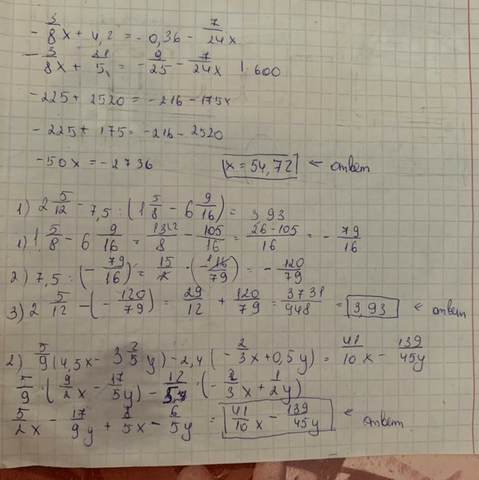 - 3/8x + 4,2 = - 0,36 - 7/24x
- 3/8x + 21/5 = - 9/25 - 7/24x |·600
-225 + 2520 = -216 - 175x
-225 + 175 = -216 - 2520
-50x = -2736 x = 54,72 ← ответ
1) 2 5/12 - 7,5 : (1 5/8 - 6 9/16) = 3,93
1) 1 5/8 - 6 9/16 = 13\2/8 - 105/16 = 26-105/16 = - 79/16
2) 7,5 : (- 79/16) = 15/2 · (- 16/79) = - 120/79
3) 2 5/12 - (- 120/79) = 29/12 + 120/79 = 3731/948 = 3,93 ← ответ
2) 5/9 (4,5x - 3 2/5 y) - 2,4 (- 2/3x + 0,5y) = 41/10x - 139/45y
5/9 · (9/2x - 17/5y) - 12/5 · (- 2/3x + 1/2y)
5/2x - 17/9y + 8/5x - 6/5y = 41/10x - 139/45y ← ответ